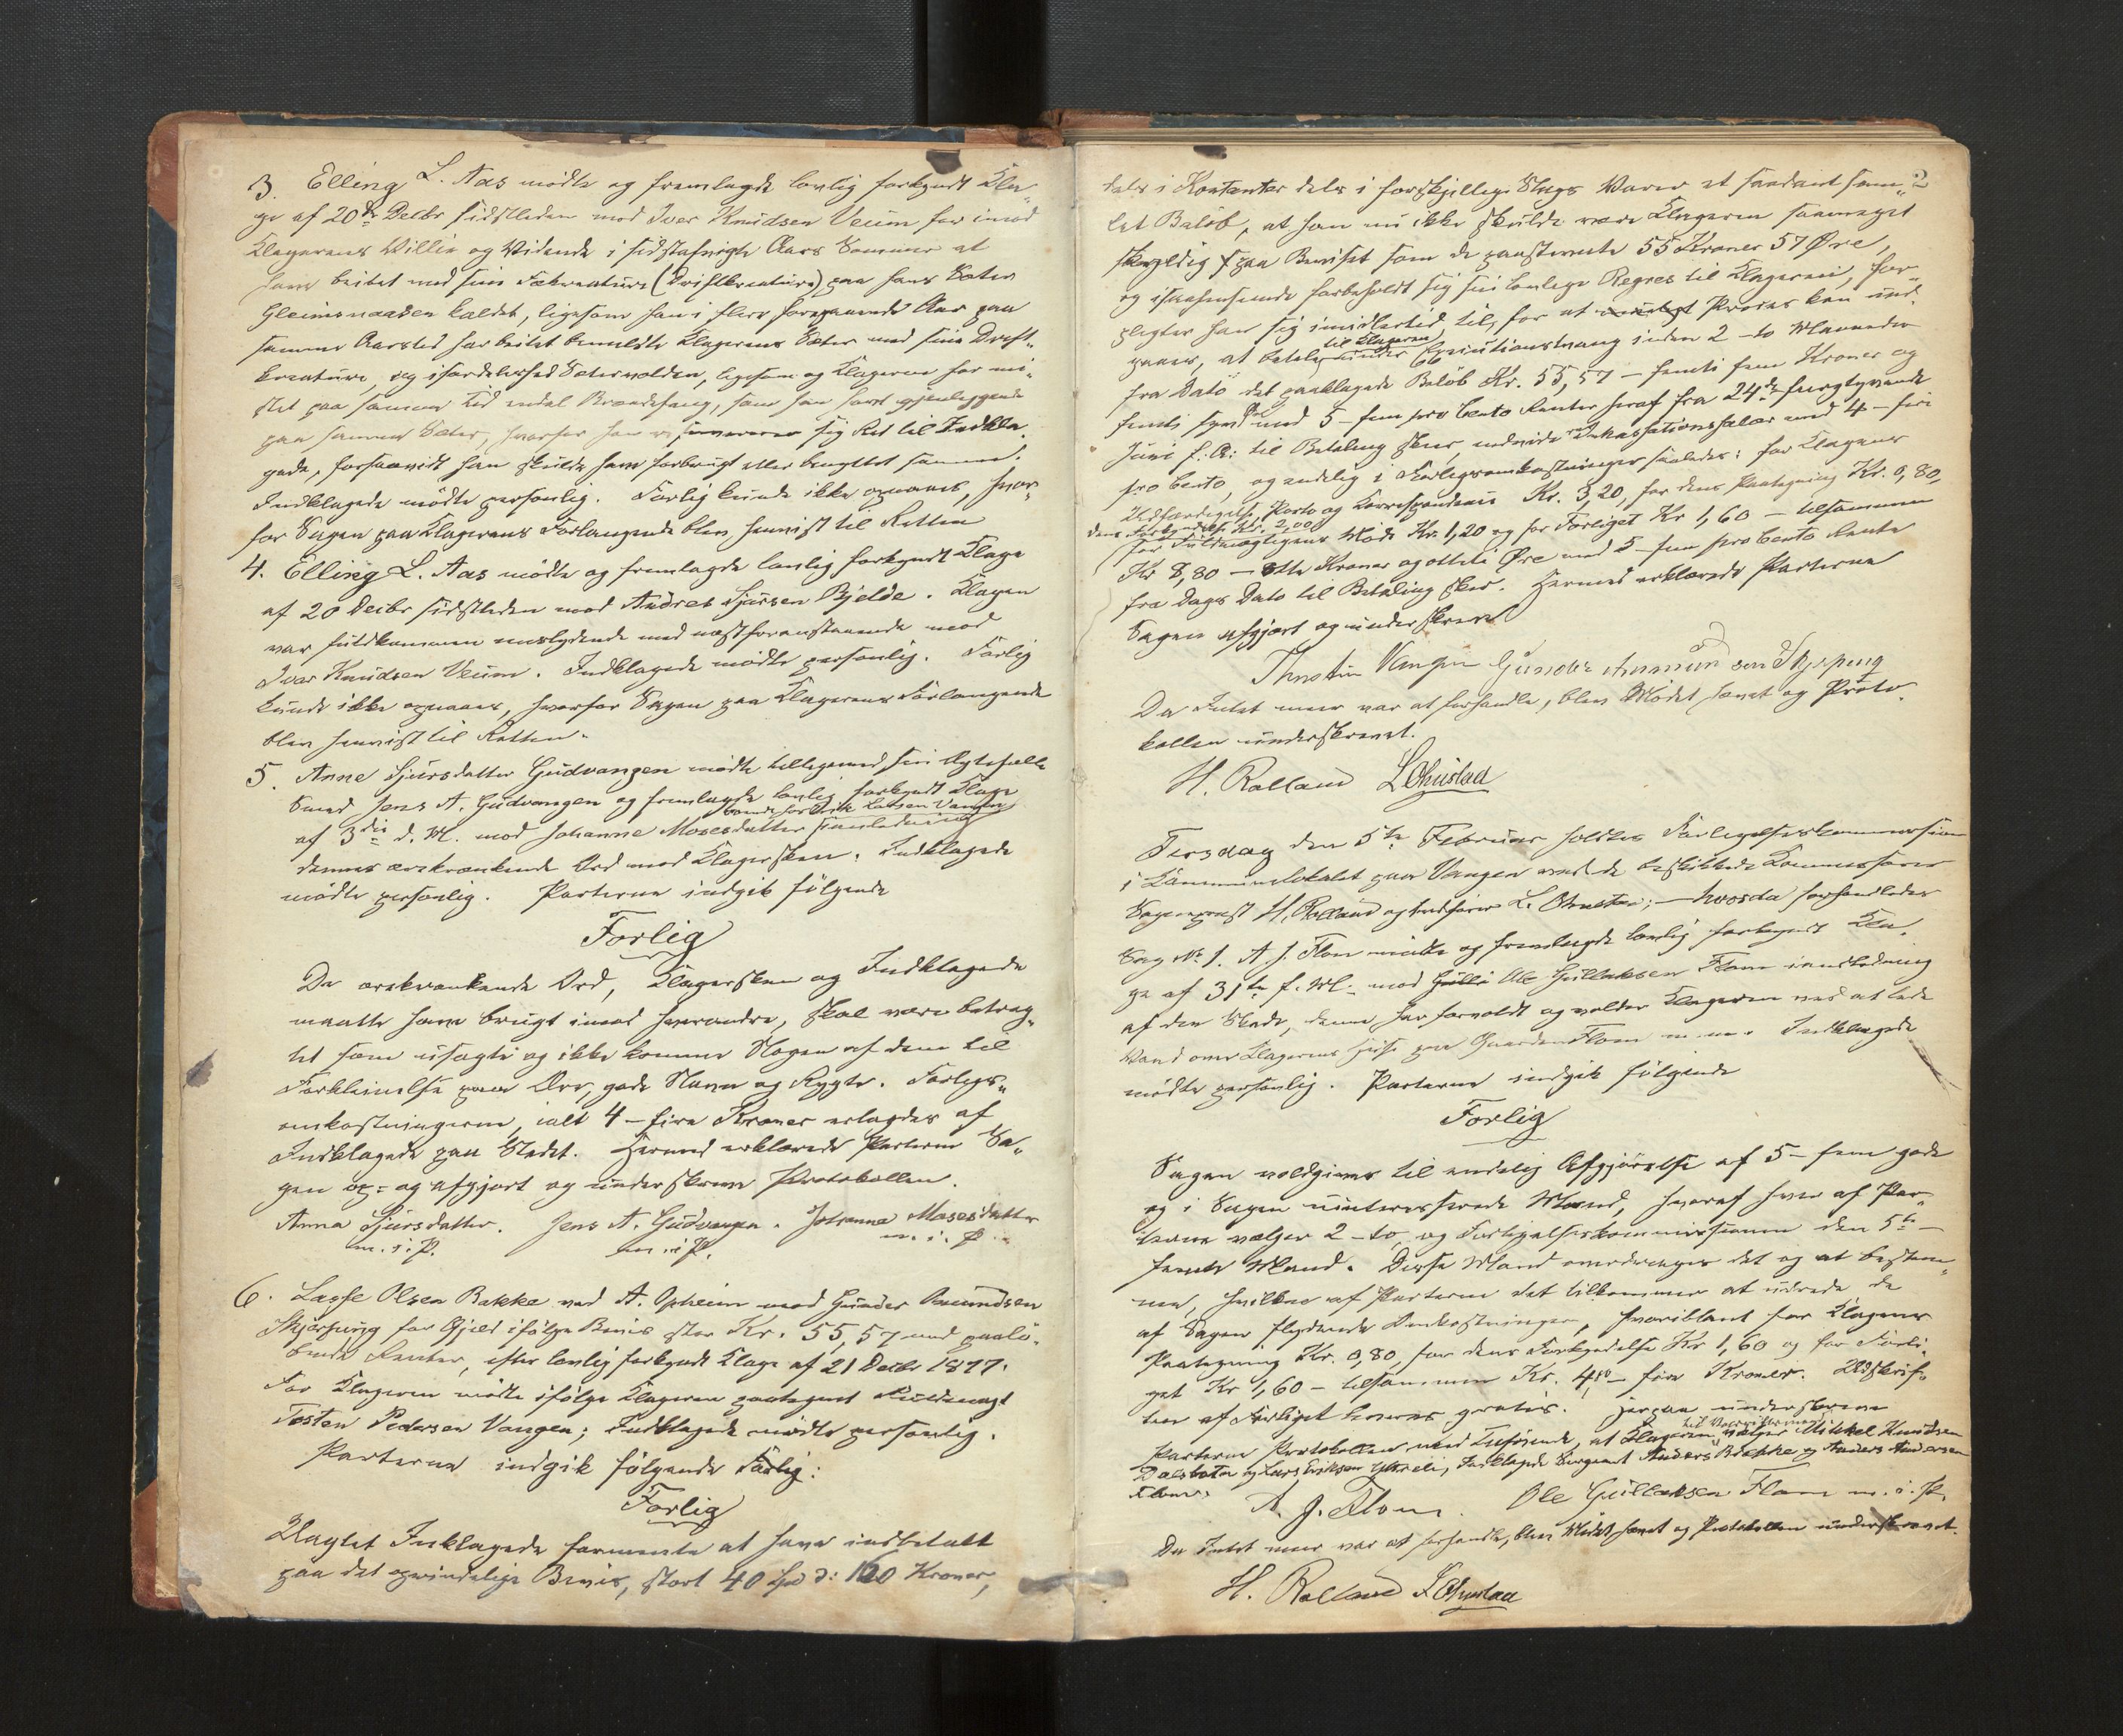 3. Elling L. Aas mødte og fremlagde lovlig forkyndt Kla„
ge af 20de Decbr sidstleden mod Iver Knudsen Veum for imod
Klagerens Villie og Vidende i sidstafvigte Aars Sommer at
have beitet med sine Fækreature (Driftkreature) paa hans Sæter
Gleimsnaaden kaldet, ligesom han i flere foregaaende Aar paa
samme Aarstid har beitet bemeldte Klagerens Sæter med sine Drift„
kreature, og isærdeleshed Sætervolden, ligesom og Klageren har mi„
stet paa samme Tid endel Brændefang, som han havde gjenliggende
paa samme Sæter, hvorfor han reserverer sig Ret til Indkla„
gede, forsaavidt han skulde have forbrugt eller benyttet samme.
Indklagede mødte personlig. Forlig kunde ikke opnaaes, hvor„
for Sagen paa Klagerens Forlangende blev henvist til Retten
4. Elling L. Aas mødte og fremlagde lovlig forkyndt Klage
af 20 Decbr sidstleden mod Andres Sjursen Bjelde. Klagen
var fuldkommen enslydende med næstforanstaaende mod
Iver Knudsen Veum. Indklagede mødte personlig. Forlig
kunde ikke opnaaes, hvorfor Sagen paa Klagerens Forlangende
blev henvist til Retten.
5. Anne Sjursdatter Gudvangen mødte tilligemed sin Ægtefælle
Smed Jens A. Gudvangen og fremlagde lovlig forkyndt Klage
boende hos Erik Larsen Vangen
af 3die d. M. mod Johanne Mosesdatter i anledning
dennes ærekrænkende Ord mod Klagersken. Indklagede
mødte personlig. Parterne indgik følgende
Forlig
De ærekrænkende Ord, Klagersken og Indklagede
maatte have brugt imod hverandre, skal være betrag„
tet som usagte og ikke komme Nogen af dem til
Forkleinelse paa Ære, gode Navn og Rygte. Forligs„
omkostningerne, ialt 4 – fire Kroner erlagdes af
Indklagede paa Stedet. Hermed erklærede Parterne Sa„
gen op- og afgjort og underskrev Protokollen.
Anna Sjursdatter. Jens A. Gudvangen. Johanne Mosesdatter
m. i. P. m. i. P. m. i. P.
6. Lasse Olsen Bakke ved A. Opheim mod Gunder Amundsen
Skjerping for Gjæld ifølge Bevis stor Kr. 55,57 med paalø„
bende Renter, efter lovlig forkyndt Klage af 21 Decbr 1877.
For Klageren mødte ifølge Klageren paategnet Fuldmagt
Tosten Pedersen Vangen; Indklagede mødte personlig.
Parterne indgik følgende Forlig:
Forlig
Uagtet Inklagede formente at have indbetalt
paa det oprindelige Bevis, stort 40 Spd ɔ: 160 Kroner,
2
dels i Kontanter dels i forskjellige Slags Varer et saadant sam„
let Beløb, at han nu ikke skulde være Klageren saameget
skyldig paa Beviset som de paastævnte 55 Kroner 57 Øre,
og isaahenseende forbeholdt sig sin lovlige Regres til Klageren, for„
pligter han sig imidlertid til, for at undgaa Proces kan und„
til Klageren
gaaes, at betale under Executionstvang inden 2 – to Maaneder
fra Dato det paaklagede Beløb Kr. 55,57 – femti fem Kroner og
femti syv Øre med 5 – fem pro Cento Renter heraf fra 24de fireogtyvende
Juni f. A. til Betaling skeer, endvidere Inkassationssalær med 4 – fire
pro Cento, og endelig i Forligsomkostninger saaledes: for Klagens
Udfærdigelse, Porto og Korrespondence Kr. 3,20, for dens Paategning Kr. 0,80,
dens Forkyndelse Kr. 2,00
for Fuldmægtigens Møde Kr. 1,20 og for Forliget Kr 1,60 – tilsammen
Kr 8,80 – otte Kroner og otteti Øre med 5 – fem pro Cento Rente
fra Dags Dato til Betaling skeer. Hermed erklærede Parterne
Sagen afgjort og underskrev
Thostein Vangen Gunder Amundsen Skjerping
Da Intet mere var at forhandle, blev Mødet hævet og Proto„
kollen underskrevet.
H. Ralland L Ohnstad
Tirsdag den 5te Februar holdtes Forligelseskommission
i Kommunelokalet paa Vangen ved de beskikkede Kommissærer
Sogneprest H. Ralland og L. Ohnstad; – hvorda forhandledes
Sag No 1. A. J. Flom mødte og fremlagde lovlig forkyndt Kla„
ge af 31te f. M. mod Gulla Ole Gullaksen Flom i anledning
af den Skade, denne har forvoldt og volder Klageren ved at lede
Vand over Klagerens Jord paa Gaarden Flom m. m. Indklagede
mødte personlig. Parterne indgik følgende
Forlig
Sagen voldgives til endelig Afgjørelse af 5 – fem gode
og i Sagen uinteresserede Mænd, hvoraf hver af Par„
terne vælger 2 – to og Forligelseskommissionen den 5te –
femte Mand. Disse Mænd overdrages det og at bestem„
me, hvilken af Parterne det tilkommer at udrede de
af Sagen flydende Omkostninger, hvoriblant for Klagens
Paategning Kr. 0,80, for dens Forkyndelse Kr 1,60 og for Forli„
get Kr 1,60 – tilsammen Kr. 4,00 – fire Kroner. Udskrif„
ten af Forliget leveres gratis. Herpaa underskrev
Parterne Protokollen med Tilføiende, at Klageren vælger Mikkel Knudsen
Dalsbotn og Lars Eriksen, Indklagede Sergeant Anders Brekke og Anders Andersen
Flom.
A. J. Flom. Ole Gullaksen Flom m. i. P.
Da Intet mere var at forhandle, blev Mødet hævet og Protokollen underskrevet.
H. Ralland L Ohnstad